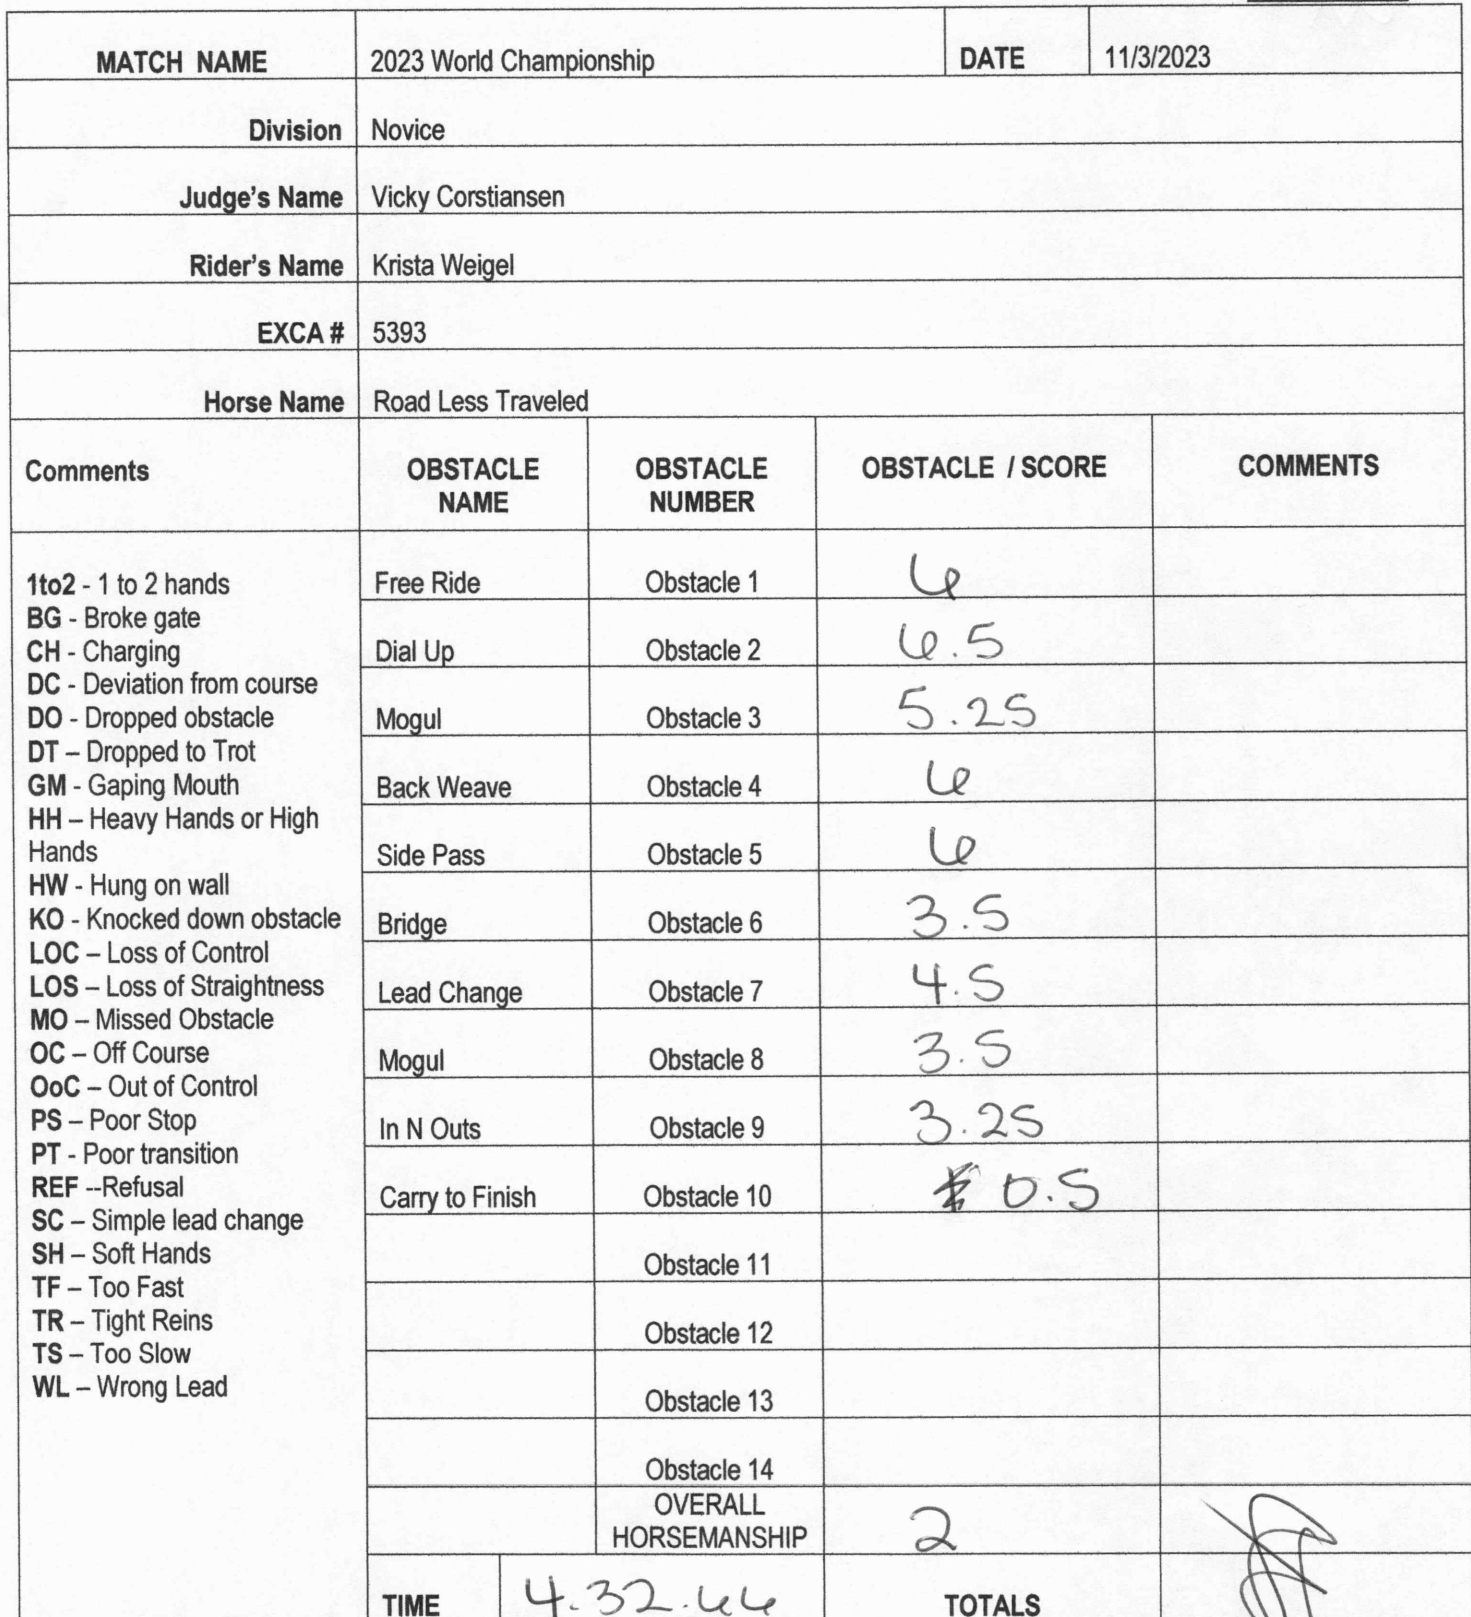 MATCH NAME 2023 World Championship DATE 11/3/2023
Division Novice
Judge's Name Vicky Corstiansen
Rider's Name Krista Weigel
EXCA # 5393
Horse Name Road Less Traveled
Comments OBSTACLE NAME OBSTACLE NUMBER OBSTACLE / SCORE COMMENTS
1to2 - 1 to 2 hands
BG - Broke gate
CH - Charging
DC - Deviation from course
DO - Dropped obstacle
DT – Dropped to Trot
GM - Gaping Mouth
HH – Heavy Hands or High
Hands
HW - Hung on wall
KO - Knocked down obstacle
LOC – Loss of Control
LOS – Loss of Straightness
MO – Missed Obstacle
OC – Off Course
OoC – Out of Control
PS – Poor Stop
PT - Poor transition
REF --Refusal
SC – Simple lead change
SH – Soft Hands
TF – Too Fast
TR – Tight Reins
TS – Too Slow
WL – Wrong Lead
Free Ride Obstacle 1 6
Dial Up Obstacle 2 6.5
Mogul Obstacle 3 5.25
Back Weave Obstacle 4 6
Side Pass Obstacle 5 6
Bridge Obstacle 6 3.5
Lead Change Obstacle 7 4.5
Mogul Obstacle 8 3.5
In N Outs Obstacle 9 3.25
Carry to Finish Obstacle 10 0.5
Obstacle 11
Obstacle 12
Obstacle 13
Obstacle 14
OVERALL
HORSEMANSHIP 2
TIME 4.32.66 TOTALS